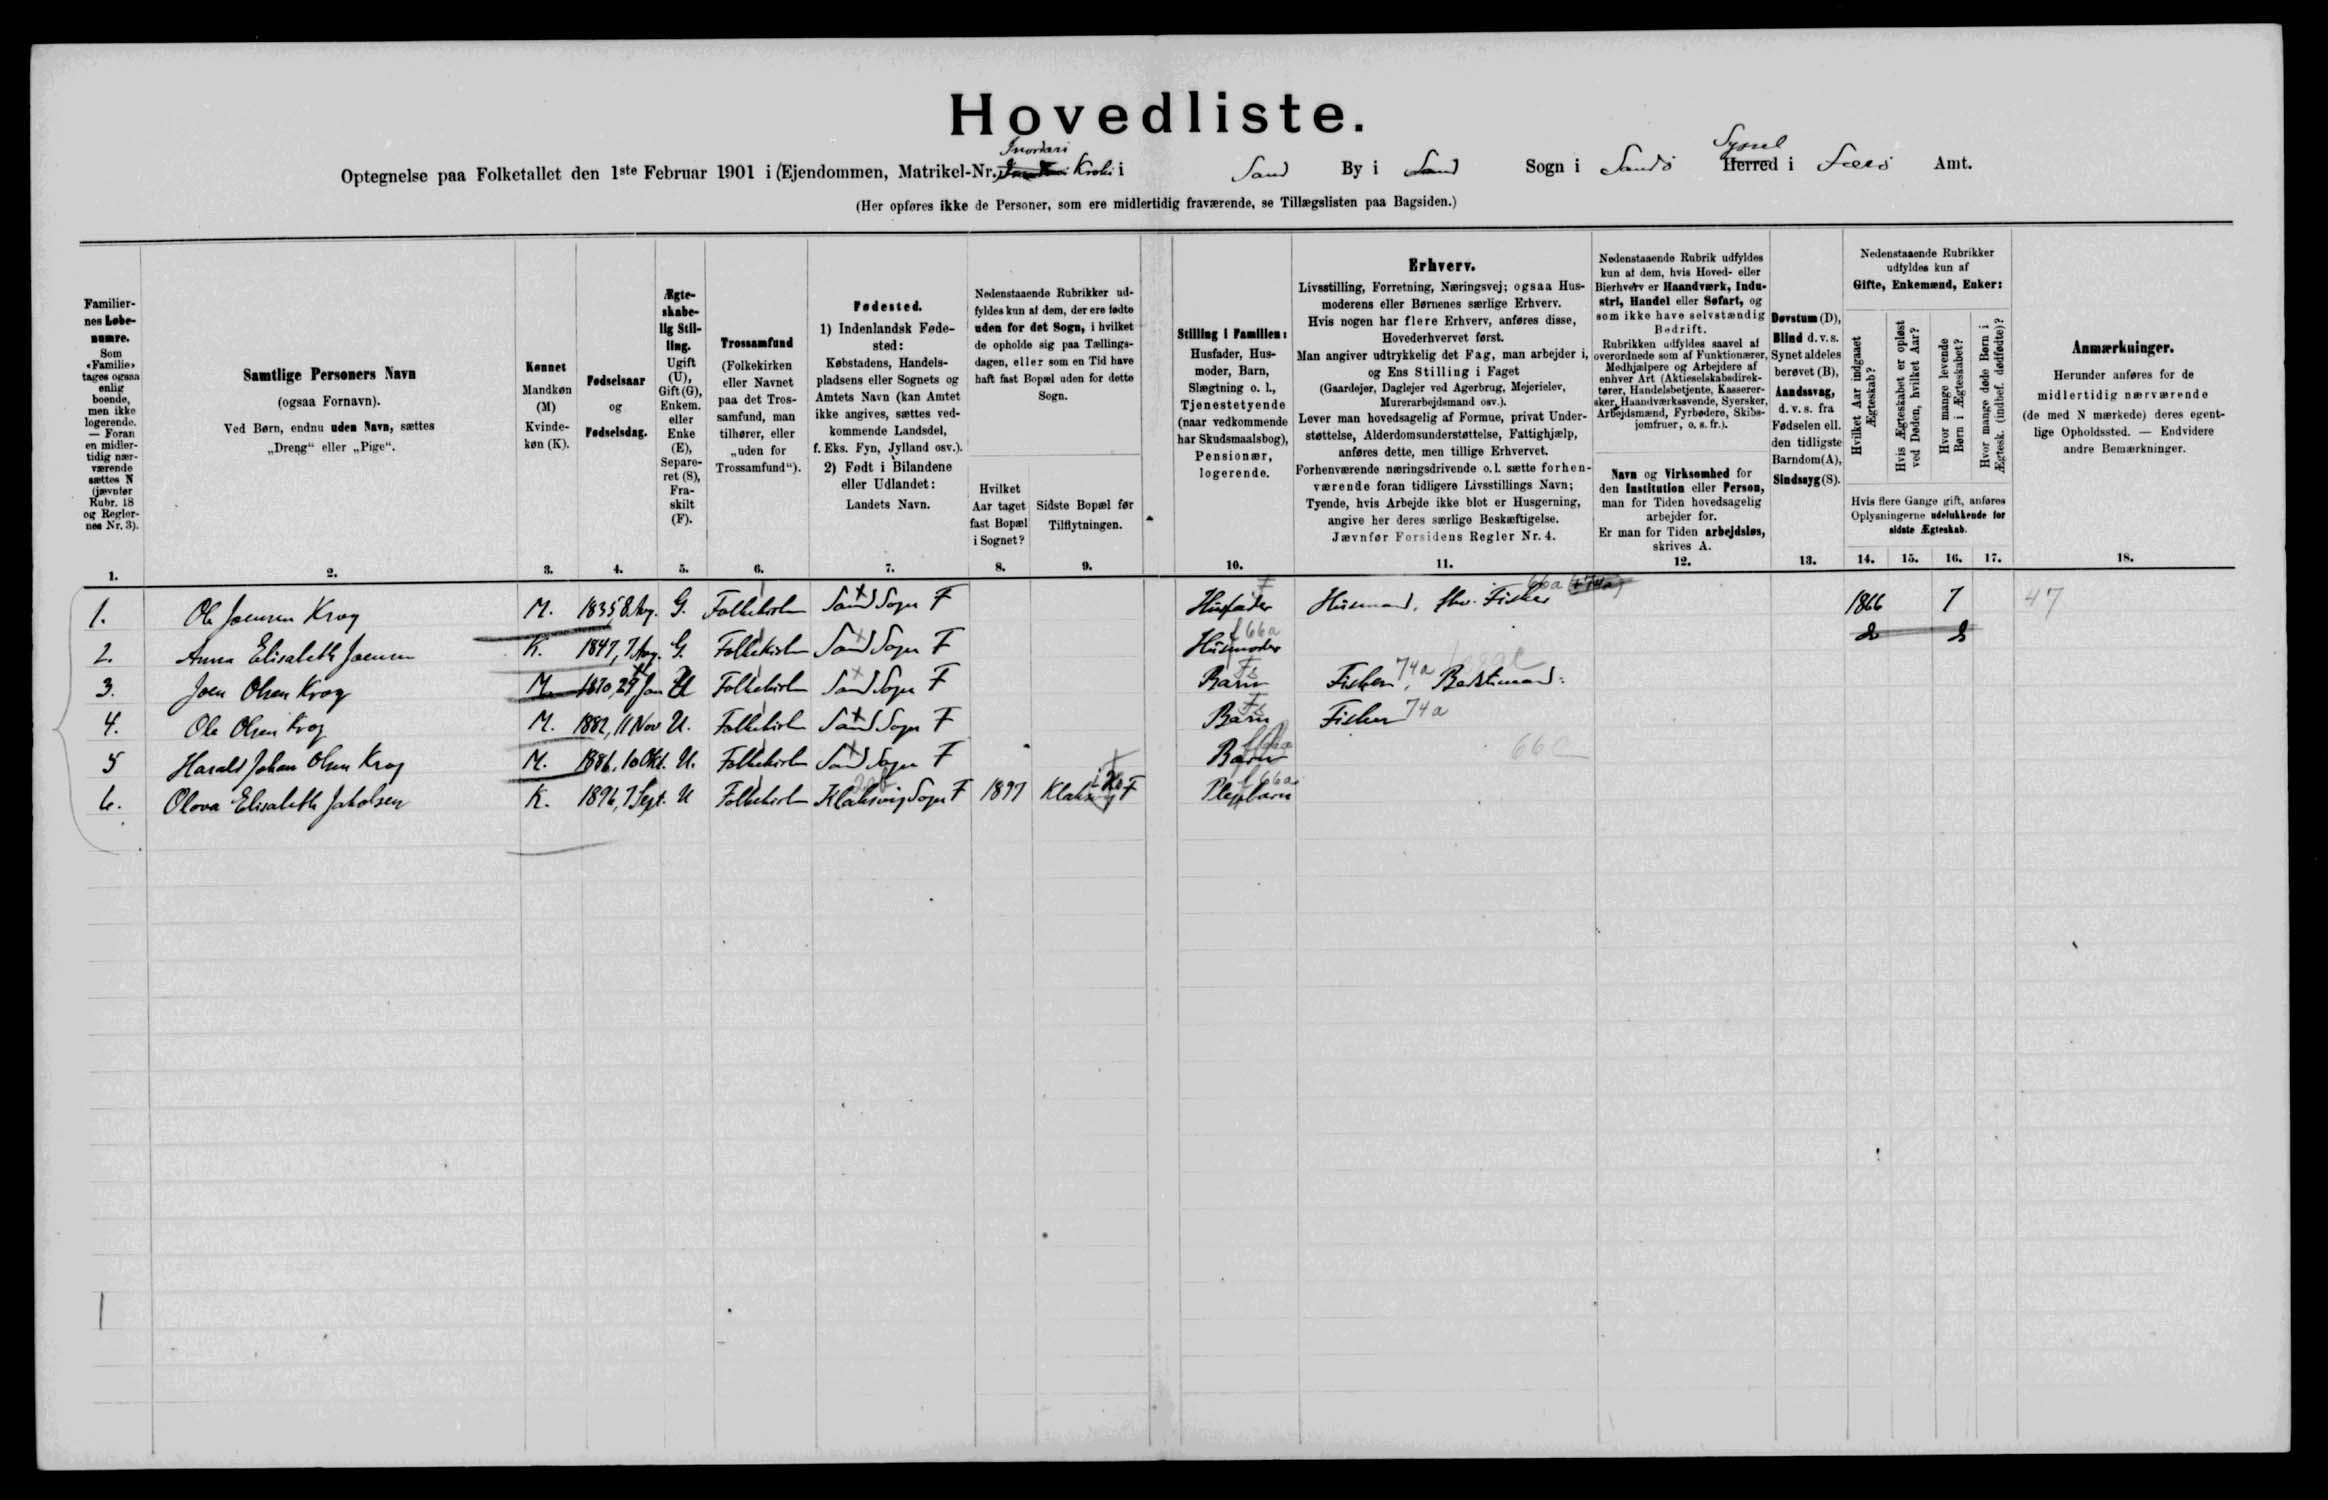 Hovedliste.
Optegnelse paa Folketallet den 1ste Februar 1901 i (Ejendommen, Matrikel-Nr. Kroki i Sand By i Sand Sogn i Sandø Herred Syssel i Færø Amt.
(Her opføres ikke de Personer, som ere midlertidig fraværende, se Tillægslisten paa Bagsiden.)
Familiernes Løbenumre.
Som «Familie» tages ogsaa enlig boende, men ikke logerende. — Foran en midlertidig nærværende sættes N (jævnfør Rubr. 18 og Reglernes Nr. 3).
Samtlige Personers Navn
(ogsaa Fornavn).
Ved Børn, endnu uden Navn, sættes
„Dreng“ eller „Pige“.
Kønnet
Mandkøn (M)
Kvindekøn (K).
Fødselsaar
og
Fødselsdag.
Ægteskabelig Stilling.
Ugift (U), Gift (G), Enkem. eller Enke (E), Separeret (S), Fraskilt (F).
Trossamfund
(Folkekirken eller Navnet paa det Trossamfund, man tilhører, eller „uden for Trossamfund“).
Fødested.
1) Indenlandsk Fødested:
Købstadens, Handelspladsens eller Sognets og Amtets Navn (kan Amtet ikke angives, sættes vedkommende Landsdel, f. Eks. Fyn, Jylland osv.).
2) Født i Bilandene eller Udlandet:
Landets Navn.
Nedenstaaende Rubrikker udfyldes kun af dem, der ere fødte uden for det Sogn, i hvilket de opholde sig paa Tællingsdagen, eller som en Tid have haft fast Bopæl uden for dette Sogn.
Hvilket Aar taget fast Bopæl i Sognet?
Sidste Bopæl før Tilflytningen.
Stilling i Familien:
Husfader, Husmoder, Barn, Slægtning o. l., Tjenestetyende (naar vedkommende har Skudsmaalsbog), Pensionær, logerende.
Erhverv.
Livsstilling, Forretning, Næringsvej; ogsaa Husmoderens eller Børnenes særlige Erhverv.
Hvis nogen har flere Erhverv, anføres disse, Hovederhvervet først.
Man angiver udtrykkelig det Fag, man arbejder i, og Ens Stilling i Faget
(Gaardejer, Daglejer ved Agerbrug, Mejerielev, Murerarbejdsmand osv.).
Lever man hovedsagelig af Formue, privat Understøttelse, Alderdomsunderstøttelse, Fattighjælp, anføres dette, men tillige Erhvervet.
Forhenværende næringsdrivende o. l. sætte forhenværende foran tidligere Livsstillings Navn;
Tyende, hvis Arbejde ikke blot er Husgerning, angive her deres særlige Beskæftigelse.
Jævnfør Forsidens Regler Nr. 4.
Nedenstaaende Rubrik udfyldes kun af dem, hvis Hoved- eller Bierhverv er Haandværk, Industri, Handel eller Søfart, og som ikke have selvstændig Bedrift.
Rubrikken udfyldes saavel af overordnede som af Funktionærer, Medhjælpere og Arbejdere af enhver Art (Aktieselskabsdirektører, Handelsbetjente, Kasserersker, Haandværkssvende, Syersker, Arbejdsmænd, Fyrbødere, Skibsjomfruer, o. s. fr.).
Navn og Virksomhed for den Institution eller Person, man for Tiden hovedsagelig arbejder for.
Er man for Tiden arbejdsløs, skrives A.
Døvstum (D),
Blind d. v. s. Synet aldeles berøvet (B),
Aandssvag, d. v. s. fra Fødselen ell. den tidligste Barndom (A),
Sindssyg (S).
Nedenstaaende Rubrikker udfyldes kun af
Gifte, Enkemænd, Enker:
Hvilket Aar indgaaet Ægteskab?
Hvis Ægteskabet er opløst ved Døden, hvilket Aar?
Hvor mange levende Børn i Ægteskabet?
Hvor mange døde Børn i Ægtesk. (indbef. dødfødte)?
Hvis flere Gange gift, anføres Oplysningerne udelukkende for sidste Ægteskab.
Anmærkninger.
Herunder anføres for de midlertidig nærværende (de med N mærkede) deres egentlige Opholdssted. — Endvidere andre Bemærkninger.
1. 2. 3. 4. 5. 6. 7. 8. 9. 10. 11. 12. 13. 14. 15. 16. 17. 18.
1. Ole Joensen Krog M. 1835, 8. Aug. G. Folkekirken Sand Sogn F Husfader Husmand, fhv. Fisker 66a 1866 7 47
2. Anna Elisabeth Joensen K. 1847, 7 Aug. G. Folkekirken Sand Sogn F Husmoder f 66a
3. Joen Olsen Krog M. 1870, 29 Jan U Folkekirken Sand Sogn F Barn Fs Fisker, 74a Bedstemand.
4. Ole Olsen Krog M. 1882, 11 Nov U. Folkekirken Sand Sogn F Barn Fs Fisker 74a
5 Harald Johan Olsen Krog M. 1886, 10 Okt. U. Folkekirken Sand Sogn F Barn 66
6. Olova Elisabeth Jakobsen K. 1896, 7 Sept. U Folkekirken Klaksvig Sogn F 1897 Klaksvig F Plejebarn f 66a